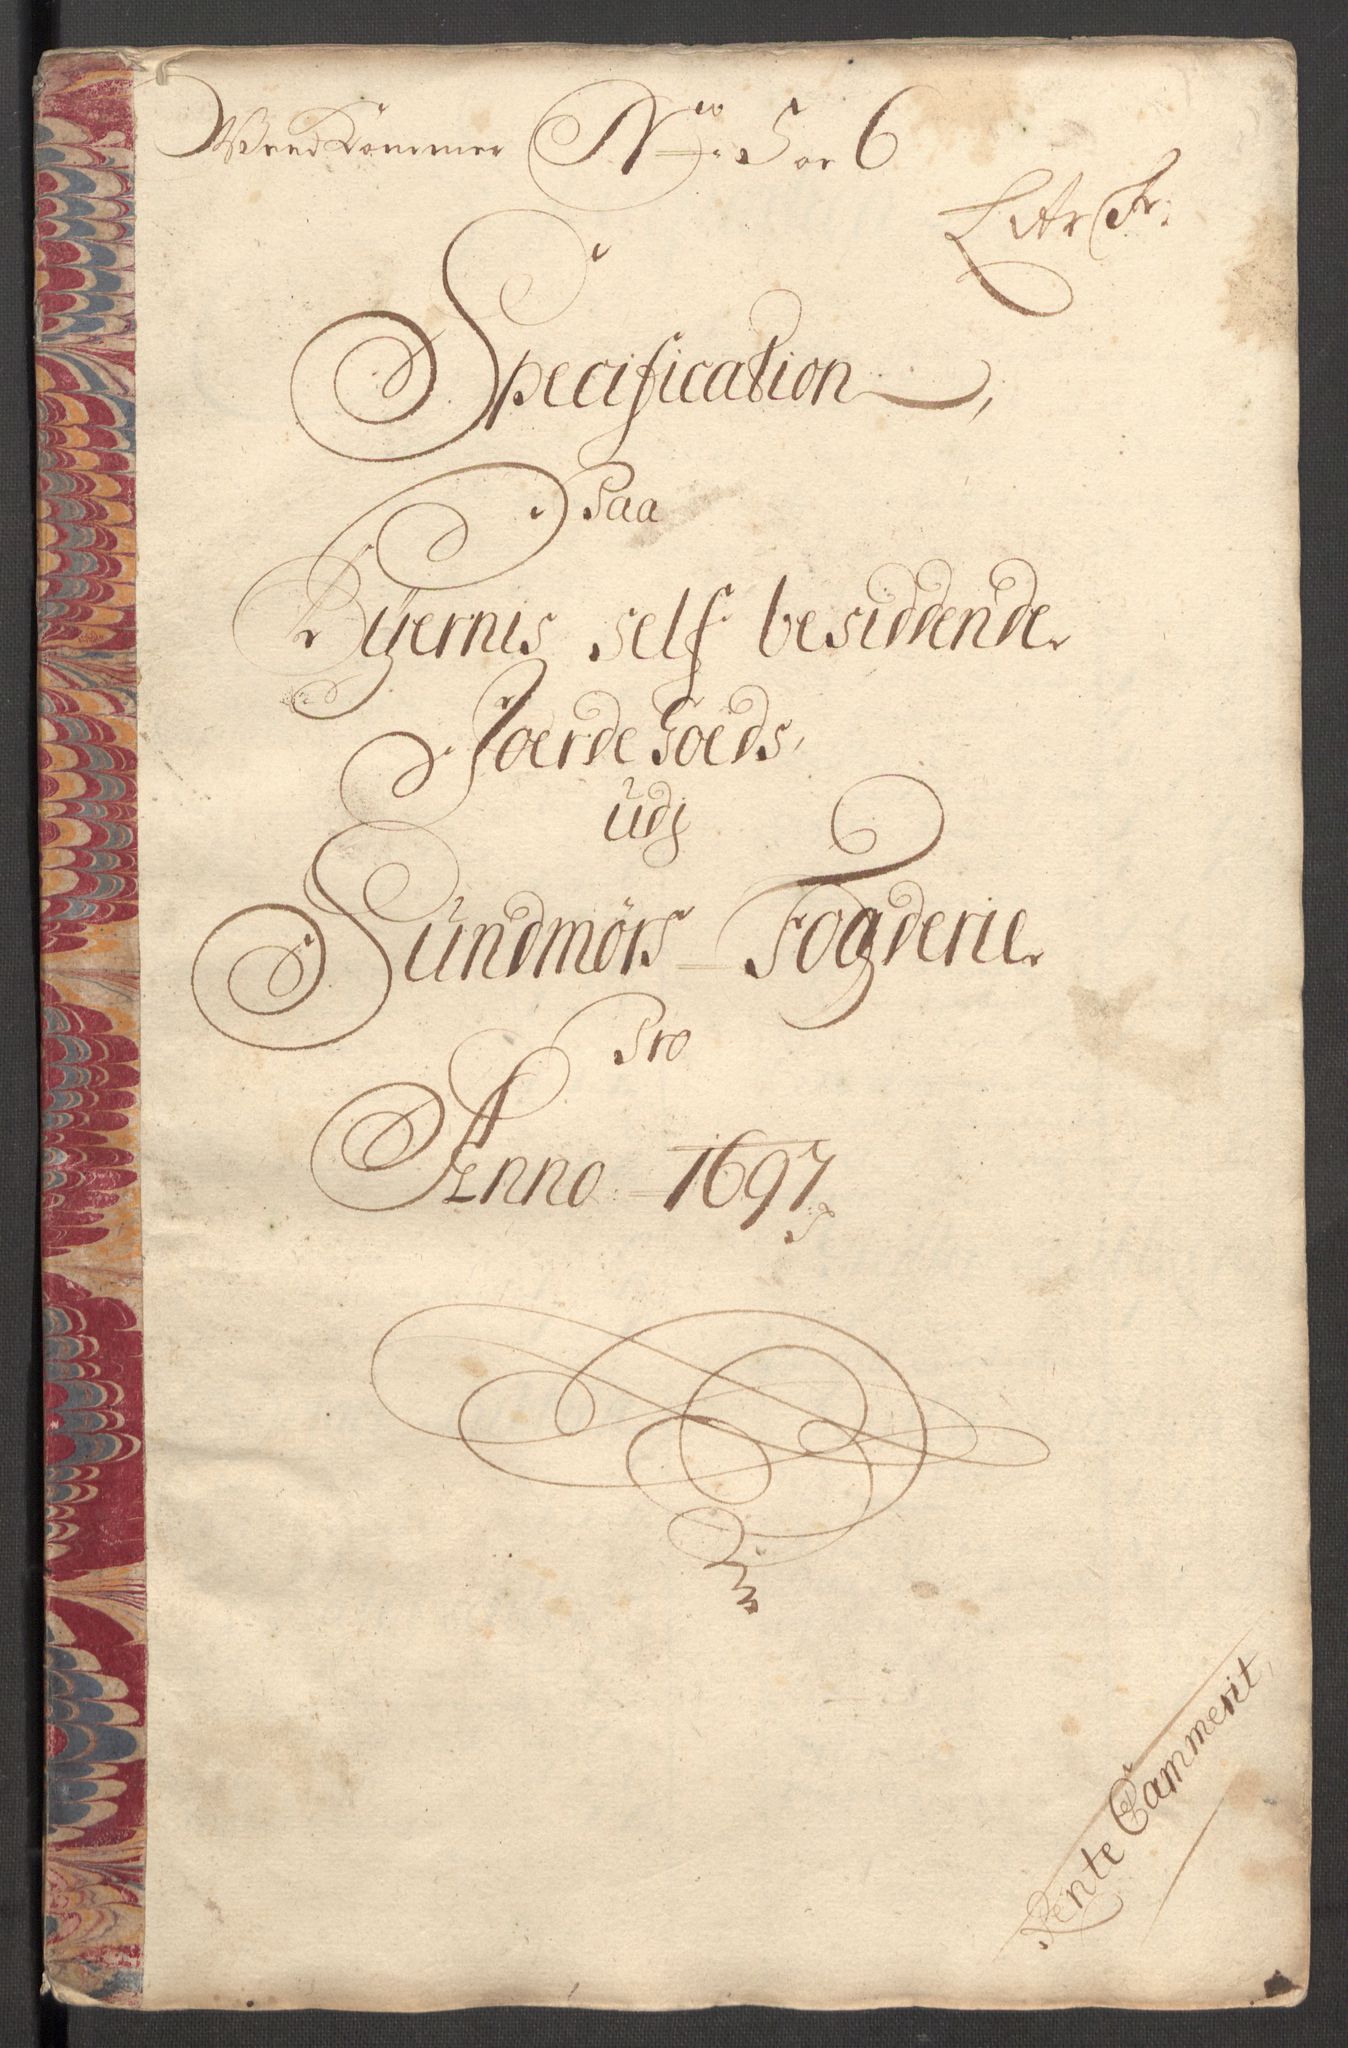 Vedkommer No: 5 oc 6
Litr Fr.
Specification,
Paa
Byernis self besiddende
Joerde Goeds,
udj
Sundmørs Fogderie
Pro
Anno 1697
Rente Cammerit,